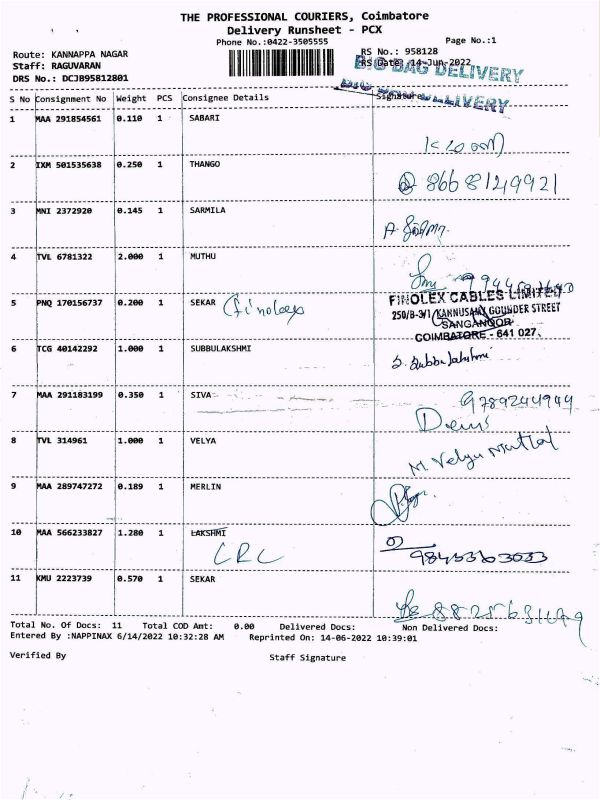 THE PROFESSIONAL COURIERS, Coimbatore
Delivery Runsheet - PCX
Phone No.:0422-3505555
Page No.:1
Route: KANNAPPA NAGAR
RS No.: 958128
Staff: RAGUVARAN
RS Date: 14-Jun-2022
BIG BAG DELIVERY
DRS No.: DCJB95812801
BIG BAG DELIVERY
S No Consignment No Weight PCS Consignee Details Signature
1 MAA 291854561 0.110 1 SABARI
2 IXM 501535638 0.250 1 THANGO
8668149921
3 MNI 2372920 0.145 1 SARMILA
4 TVL 6781322 2.000 1 MUTHU
5 PNQ 170156737 0.200 1 SEKAR Finolex
FINOLEX CABLES LIMITED
250/B-3/1 KANNUSAMY GOUNDER STREET
SANGANOOR
COIMBATORE - 641 027.
6 TCG 40142292 1.000 1 SUBBULAKSHMI
S. Subbulakshmi
7 MAA 291183199 0.350 1 SIVA
9789244949
8 TVL 314961 1.000 1 VELYA
9 MAA 289747272 0.189 1 MERLIN
10 MAA 566233827 1.280 1 LAKSHMI
CRC
11 KMU 2223739 0.570 1 SEKAR
Total No. Of Docs: 11 Total COD Amt: 0.00 Delivered Docs: Non Delivered Docs:
Entered By :NAPPINAX 6/14/2022 10:32:28 AM Reprinted On: 14-06-2022 10:39:01
Verified By Staff Signature